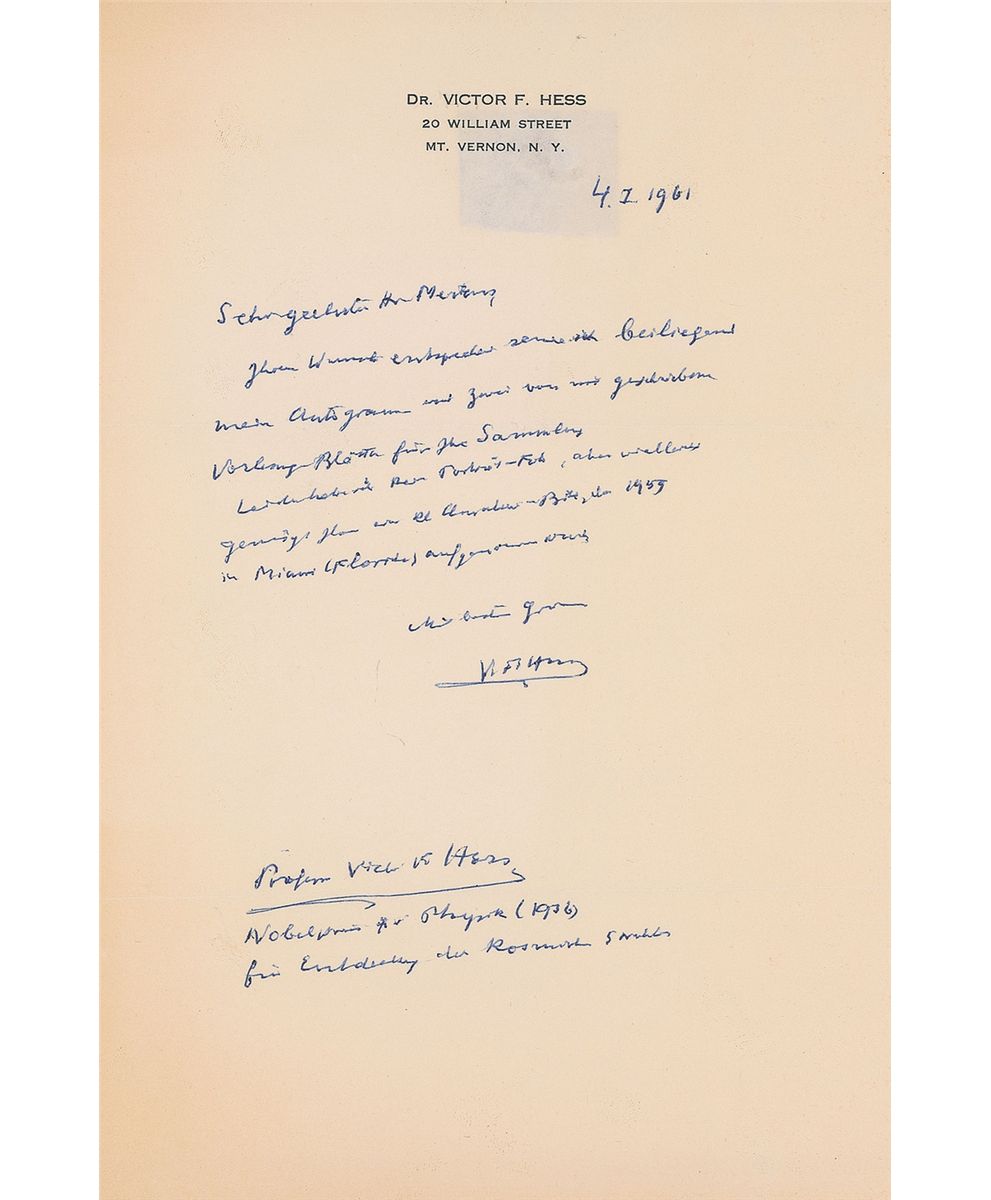 DR. VICTOR F. HESS
20 WILLIAM STREET
MT. VERNON, N. Y.
4. I. 1961
Sehr geehrter Herr Mertens
Ihrem Wunsch entsprechend sende ich beiliegend
mein Autogramm und zwei von mir geschriebene
Vorlesungs-Blätter für Ihre Sammlung
Leider habe ich kein Porträt-Foto, aber vielleicht
genügt Ihnen ein kl Amateur-Bild, das 1959
in Miami (Florida) aufgenommen wurde
Mit besten Grüssen
V. F. Hess
Professor Victor F. Hess
Nobelpreis für Physik (1936)
für Entdeckung der Kosmischen Strahlen